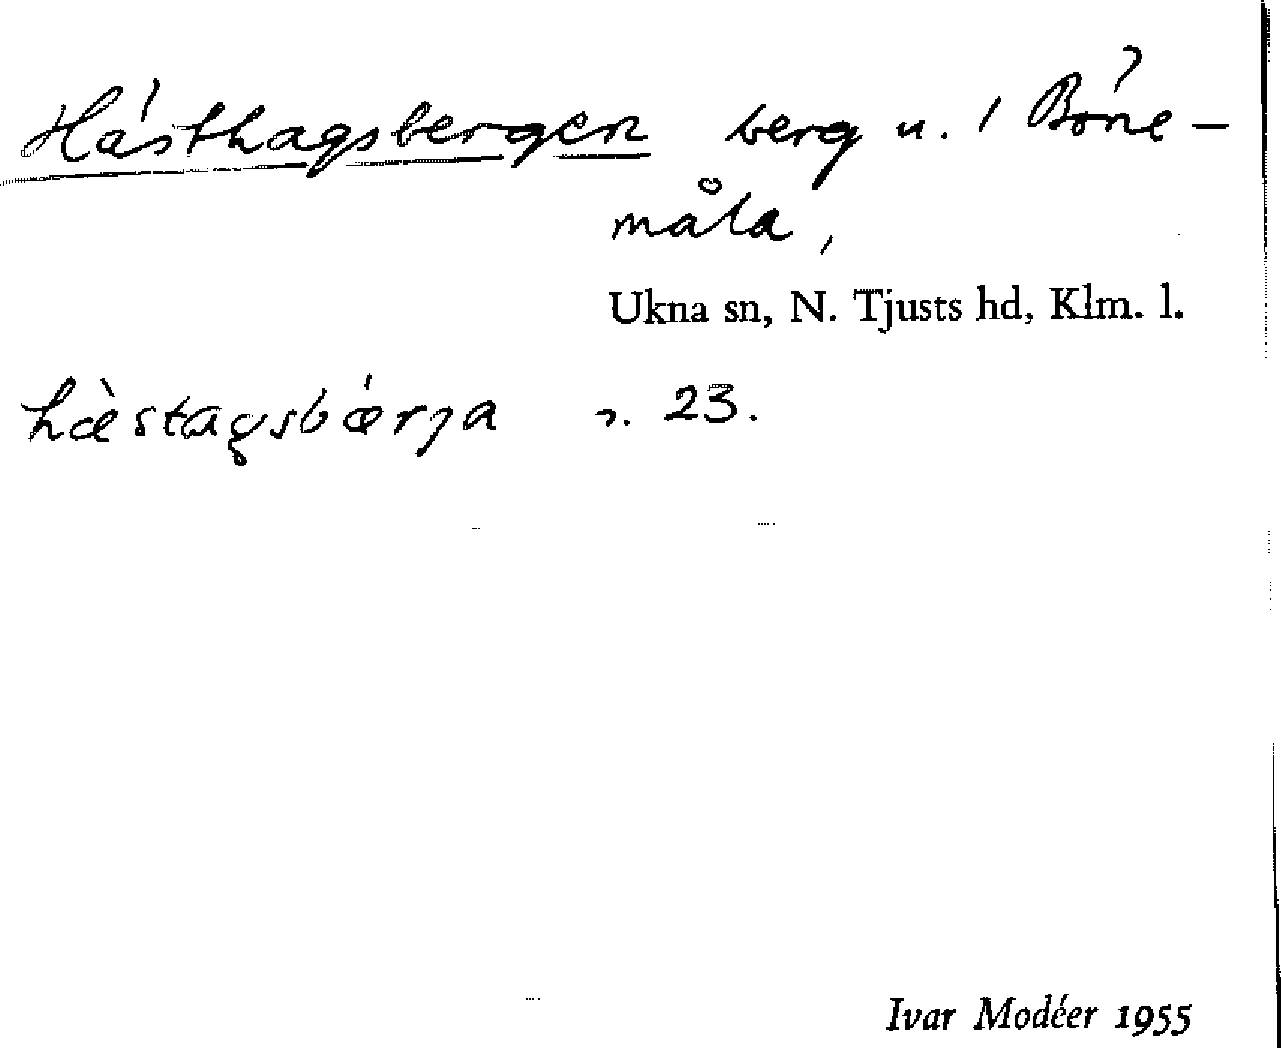 Hästhagsbergen berg u. / Böne-
måla,
Ukna sn, N. Tjusts hd, Klm. l.
hæ̀stagsbǽrja 23.
Ivar Modéer 1955